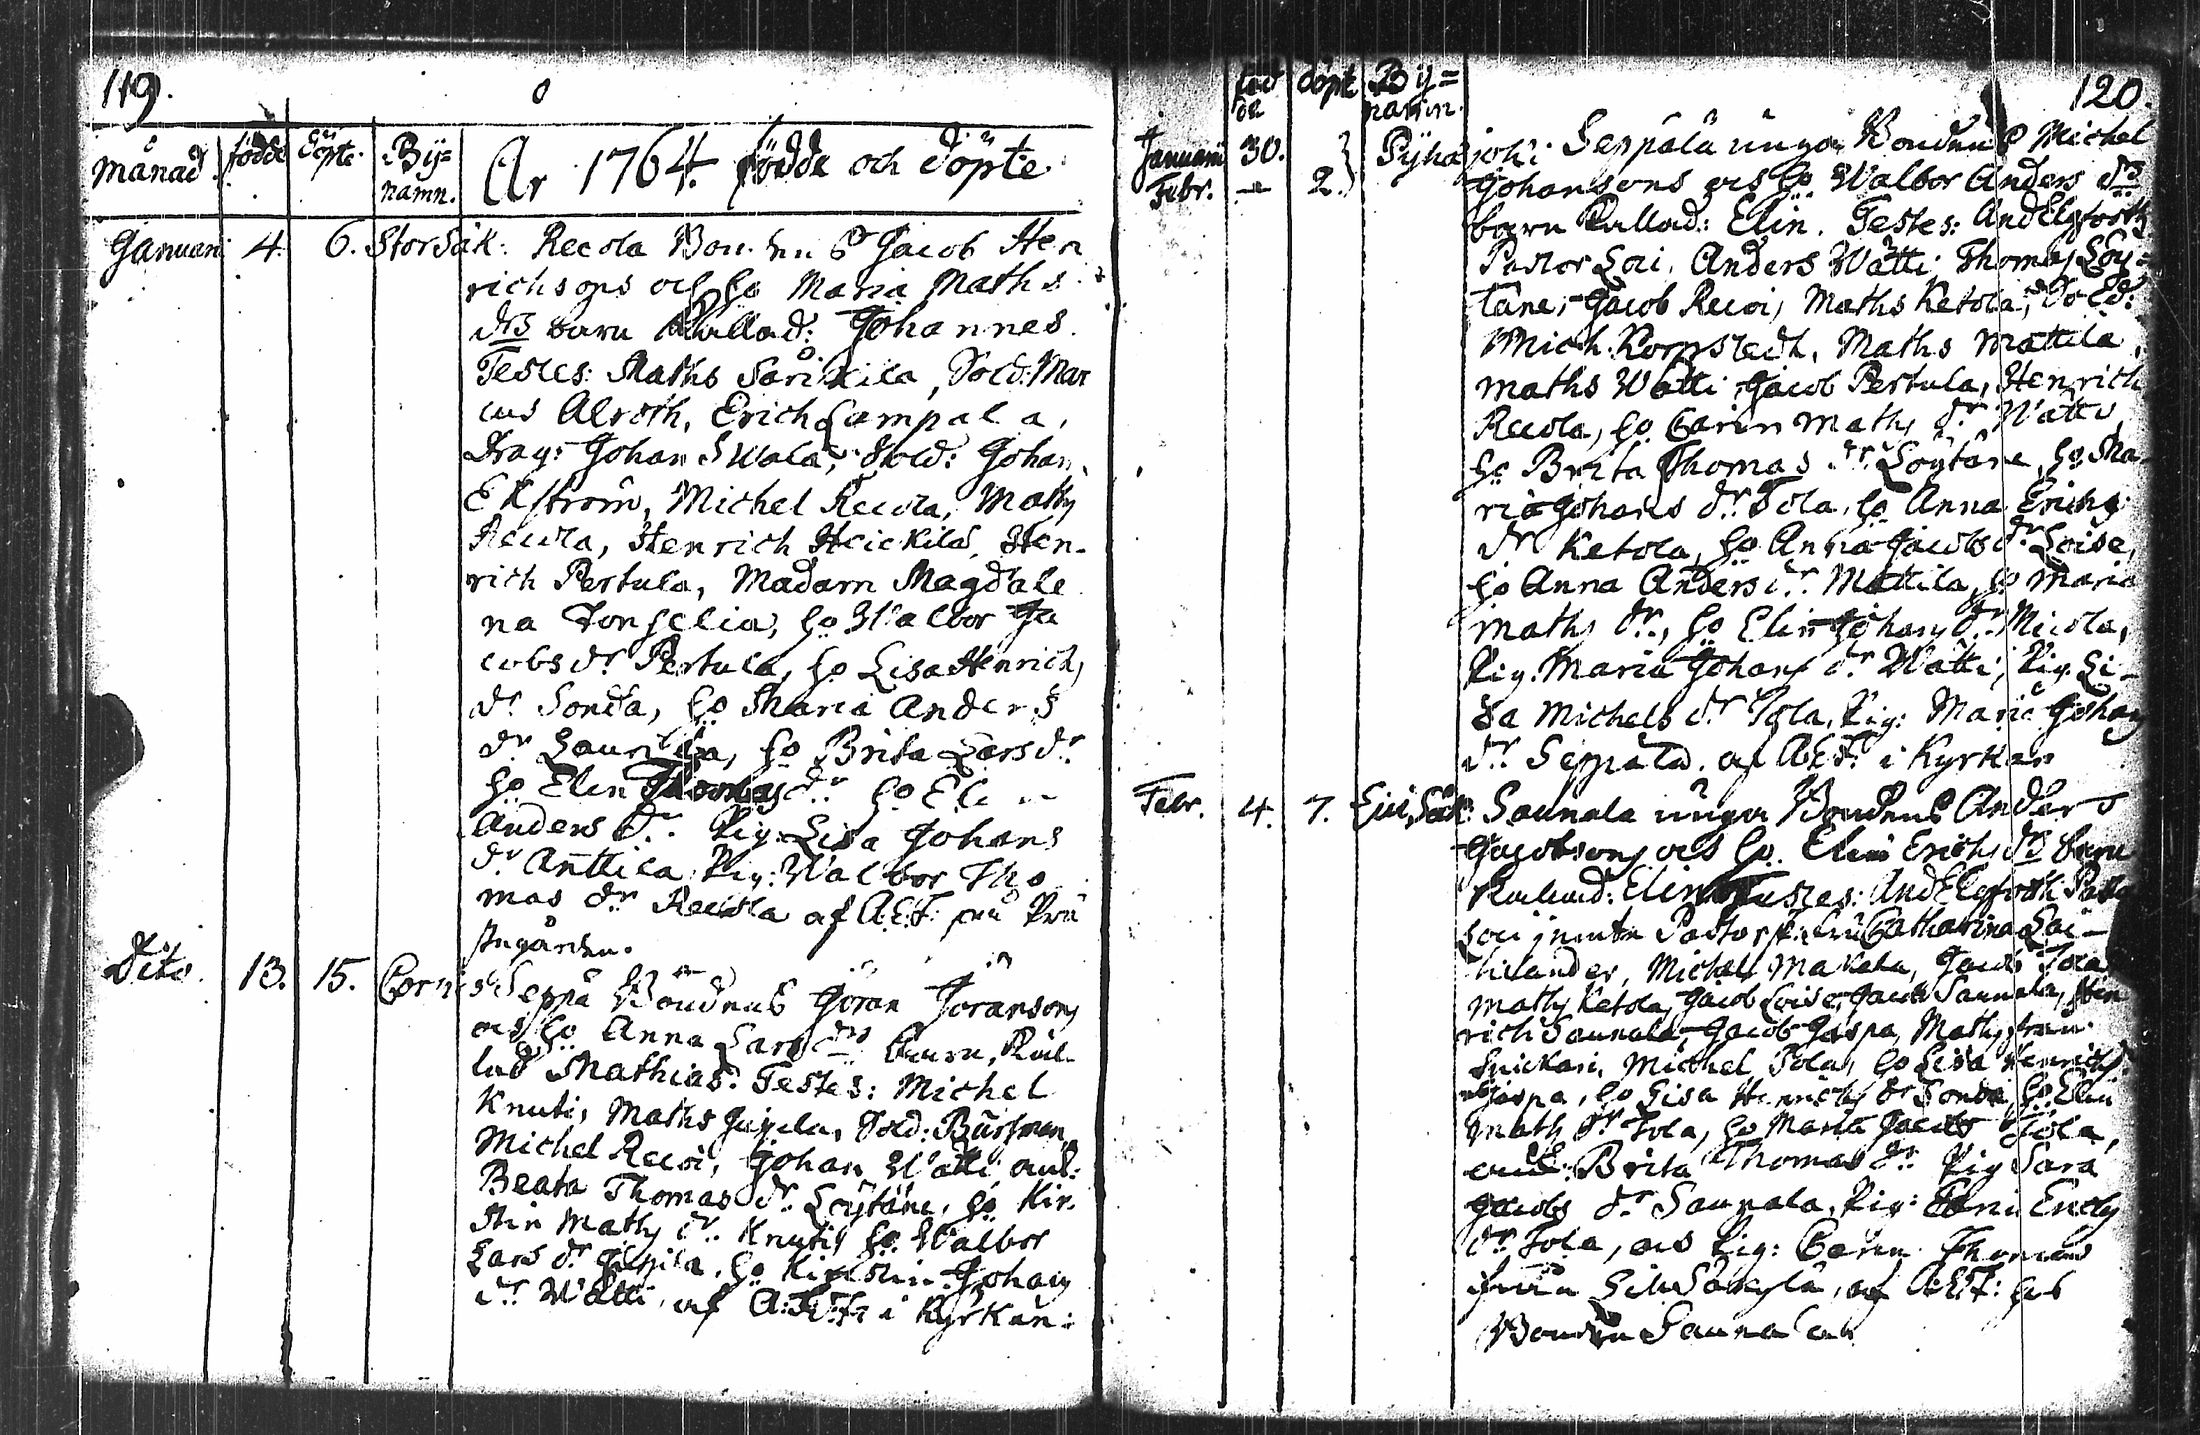 119.
månad. födde döpte. By=
namn. År 1764. födde och döpte
Januari 4. 6. Storsäk: Recola Bondens Jacob Hen
richsons och ho Maria Maths
drs barn Kallad: Johannes.
Testes: Maths Särikila, Sold: Mar
cus Alroth, Erich Lampala,
Drag: Johan Swala, Sold: Johan
Ekström, Michel Recola, Maths
Recola, Henrich Heickilä, Hen-
rich Pertula, Madam Magdale
na ho Walbor Ja
cobs dr Pertula, ho Lisa Henrichs
dr Sonda, ho Maria Anders
dr Laurila, ho Brita Lars dr.
ho Elin Thomas dr ho Elin
Anders dr. Pig. Lisa Johans
dr Anttila Pig: Walbor Tho
mas dr Recola af A.E.F. på Prä
stegården.
Dito. 13. 15. Cornis: Seppä Bondens Jöran Jöransons
och ho Anna Lars drs barn, Kal
lad Mathias. Testes: Michel
Knuti, Maths Jaiela, Sold: Bursman
Michel Recoi, Johan Wätti, enk:
Beata Thomas dr Löytäne, ho Kir
stin Maths dr. Knuti, ho Walbor
Lars dr ho Kirstin Johans
dr Wätti, af A:E:F: i Kyrkan:
föd
de döpt By=
namn. 120.
Januarii 30. Pyhäjoki Seppälä unga Bondens Michel
Febr. — 2. Johansons och ho Walbor Anders drs
barn Kallad: Elin. Testes: And Elgforth
Pastor Loci, Anders Wätti, Thomas Löy=
täne, Jacob Recoi, Maths Ketola, Sold:
Mich: Korpstedt, Maths Mattila,
Maths Wätti, Jacob Pertula, Henrich
Recola, ho Carin Maths dr Wätti,
ho Brita Thomas dr. Löytäne, ho Ma
ria Johans dr Tola, ho Anna Erichs
dr Ketola, ho Anna Jacobs dr Loise,
ho Anna Anders dr. Mattila, ho Maria
Maths dr., ho Elin Johans dr. Micola,
Pig. Maria Johans dr Wätti, Pig. Li-
sa Michels dr Tola, Pig: Maria Johans
dr. Seppälä. af A.E.F. i Kyrkan
Febr. 4. 7. Saunala unga Bondens Anders
Jacobsons och ho. Elin Erichs drs barn
Kallad: Elin Testes: And Elgforth Pastor
Loci Catharina Lai-
tilander, Michel Makala, Jacob Tola
Maths Ketola, Jacob Loise, Jacob Saunala, Hen
rich Saunala, Jacob Jaspa, Maths
Snickari, Michel Tola, ho Lisa Henrichs
Jaspa, ho Lisa Henrichs dr Sonda, ho Elin
Math dr Tola, ho Maria Jacobs Tola,
enk: Brita Thomas dr. Pig Sara
Jacobs dr Saunala, Pig: Erichs
dr Tola, och Pig: Carin Thomas
från af A:E:F: hos
Bonden Saunala